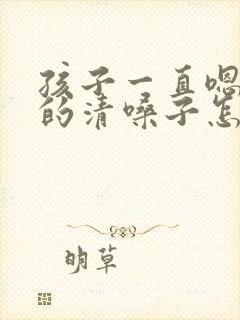 孩子一直嗯
的清嗓子怎
明草